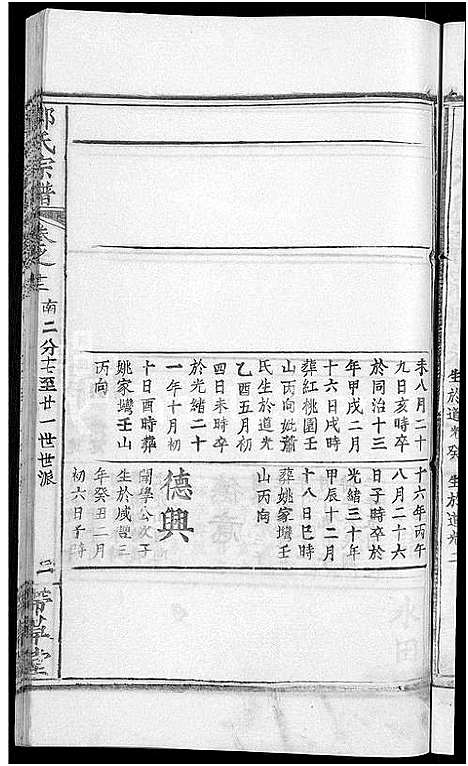 生於道光癸
生於道光二
未八月二十
九日亥時卒
於同治十三
年甲戌二月
十六日戌時
葬紅桃園壬
山丙向妣蕭
氏生於道光
乙酉五月初
四日未時卒
於光緒二十
一年十月初
十日酉時葬
姚家塆壬山
丙向
十六年丙午
八月二十六
日子時卒於
光緒三十年
甲辰十二月
十八日巳時
葬姚家塆壬
山丙向
德興
開學公次子
生於咸豐三
年癸丑二月
初六日子時
氏宗譜
卷之三
南二分十七至廿一世世派
二
帶草堂